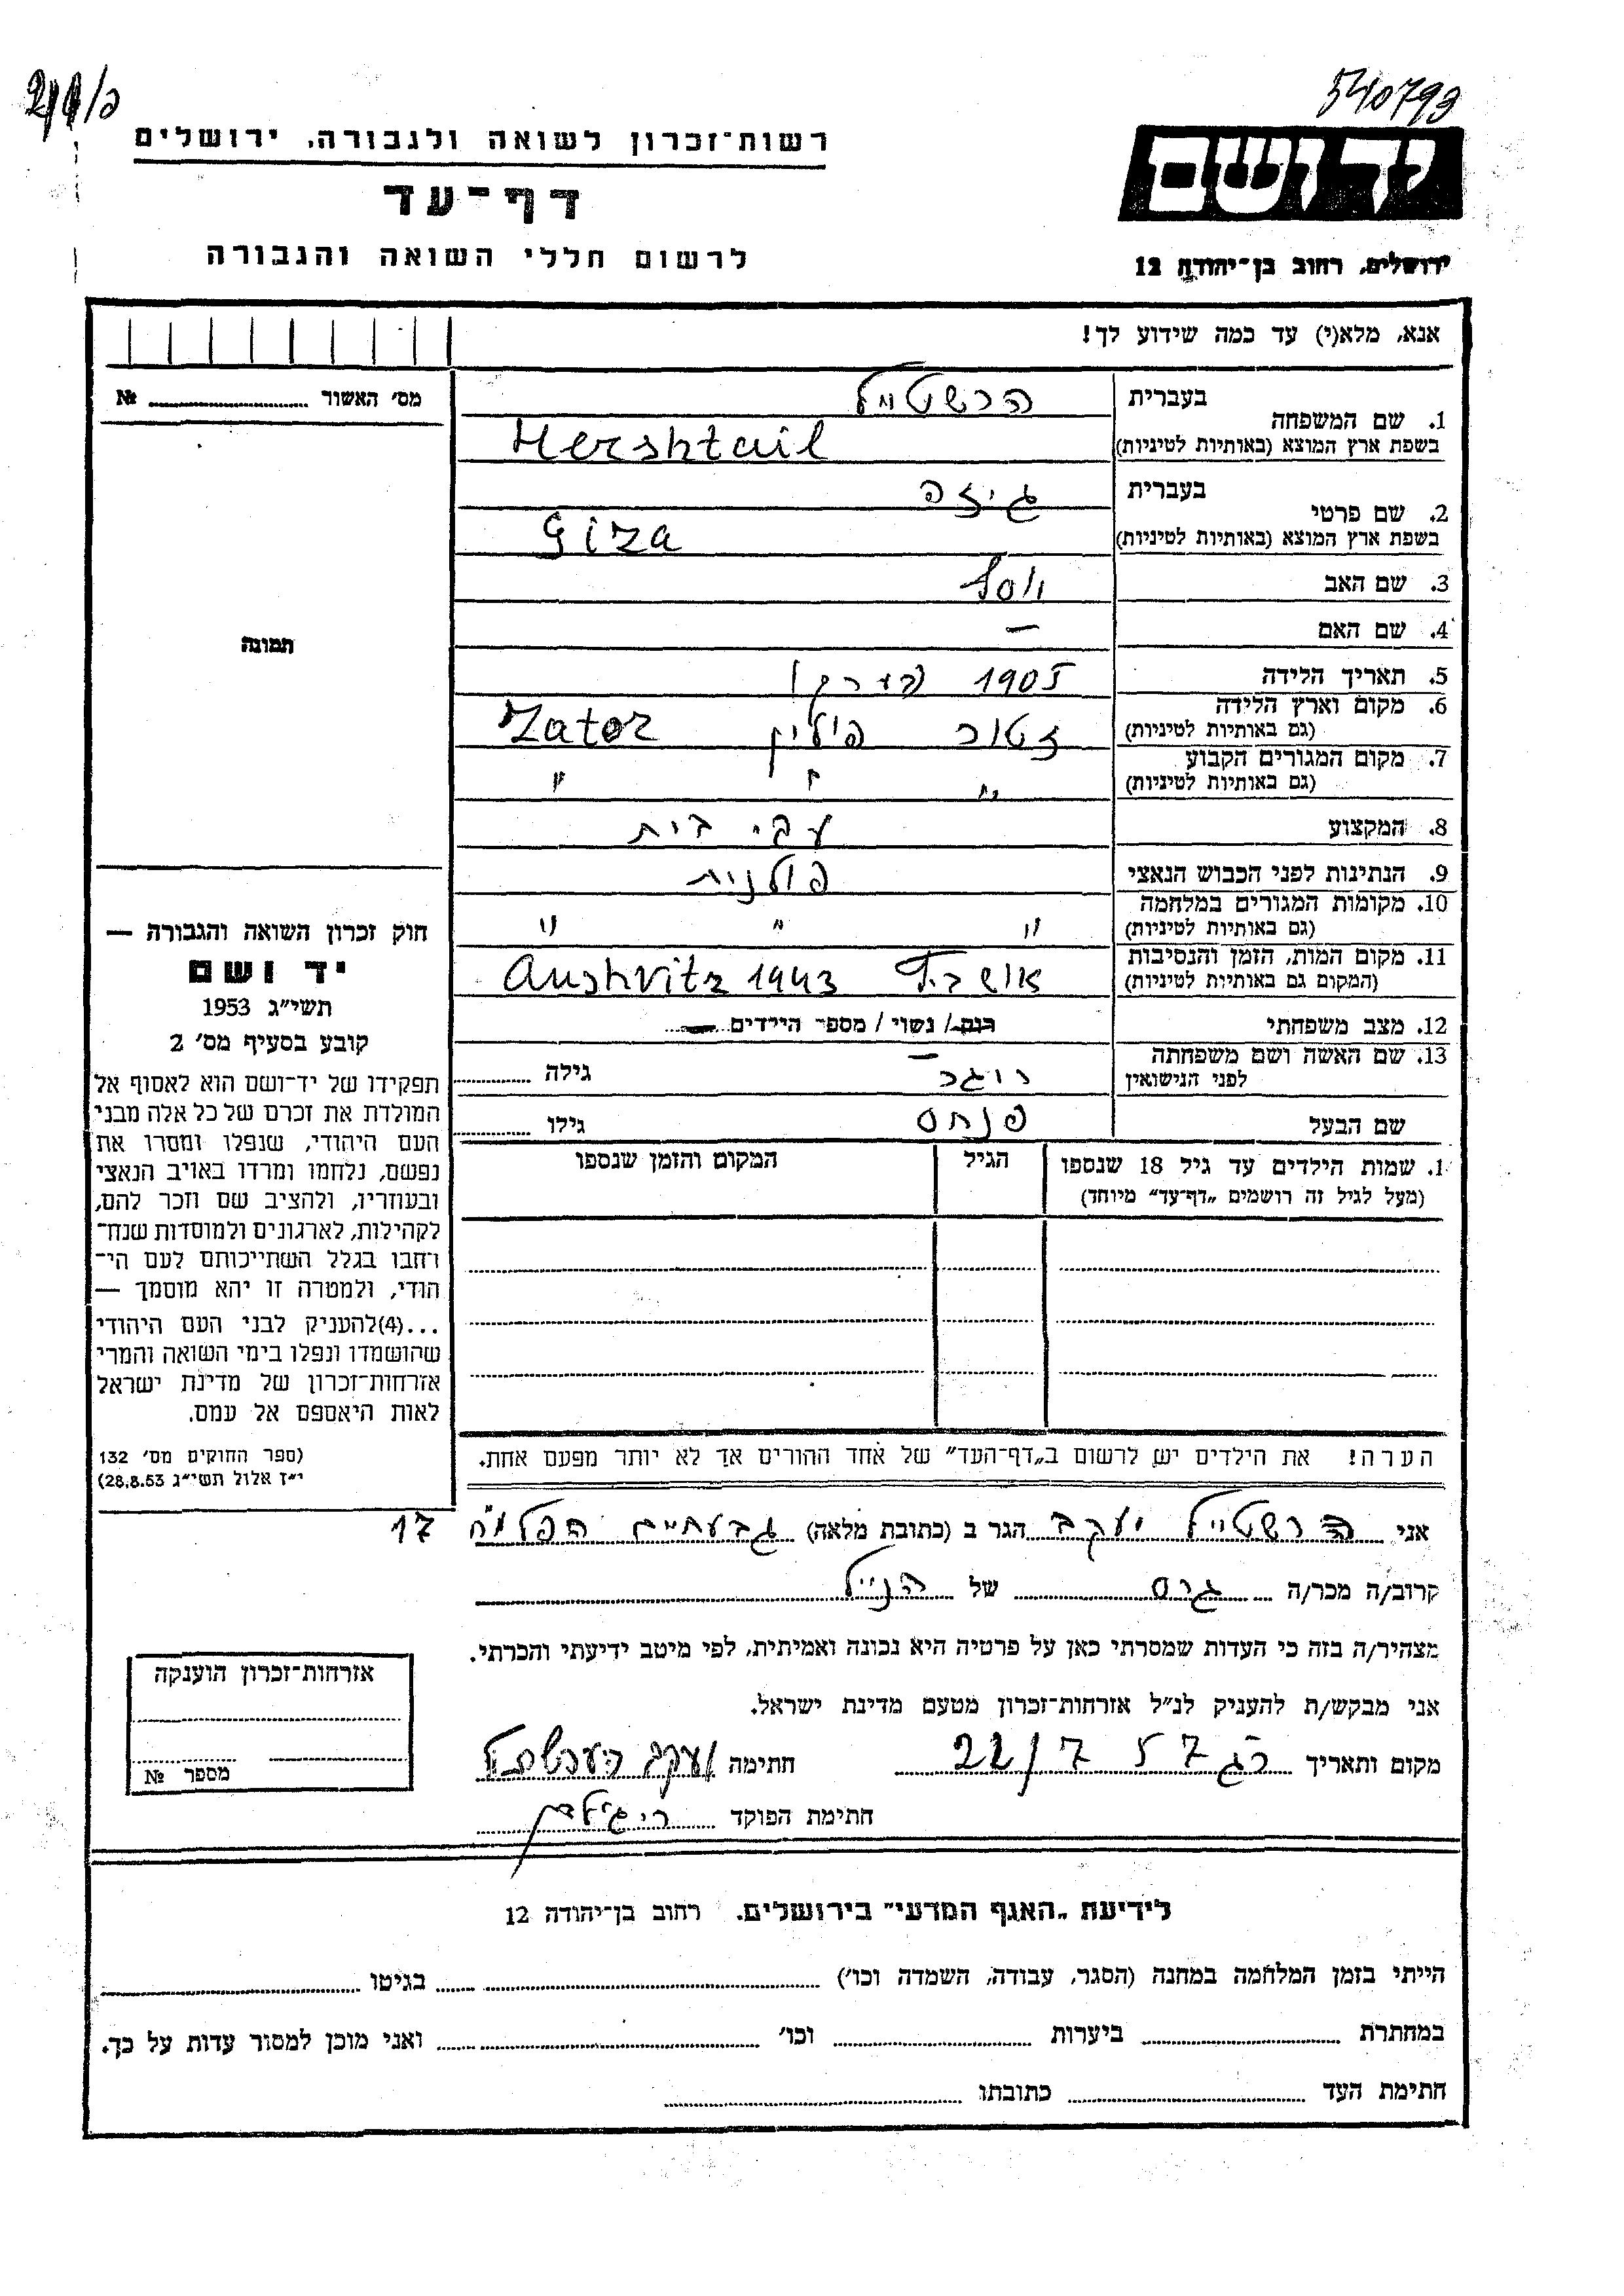 540793
רשות־זכרון לשואה ולגבורה, ירושלים
יד ושם
דף־עד
לרשום חללי השואה והגבורה
ירושלים, רחוב בן־יהודה 12
אנא, מלא(י) עד כמה שידוע לך!
מס׳ האשור № 
1. שם המשפחה בעברית הרשטייל
בשפת ארץ המוצא (באותיות לטיניות) Hershtail
2. שם פרטי בעברית גיזה
בשפת ארץ המוצא (באותיות לטיניות) Giza
3. שם האב יוסף
4. שם האם —
5. תאריך הלידה 1905 (בערך)
6. מקום וארץ הלידה (גם באותיות לטיניות) זטור פולין Zator
7. מקום המגורים הקבוע (גם באותיות לטיניות) " " "
8. המקצוע עקי בית
9. הנתינות לפני הכבוש הנאצי פולנית
10. מקומות המגורים במלחמה (גם באותיות לטיניות) " " "
11. מקום המות, הזמן והנסיבות (המקום גם באותיות לטיניות) Aushvitz 1943
12. מצב משפחתי רוק/ נשוי / מספר הילדים
13. שם האשה ושם משפחתה לפני הנישואין — רוגר גילה
שם הבעל פנחס גילו
תמונה
חוק זכרון השואה והגבורה —
יד ושם
תשי״ג 1953
קובע בסעיף מס׳ 2
תפקידו של יד־ושם הוא לאסוף אל
המולדת את זכרם של כל אלה מבני
העם היהודי, שנפלו ומסרו את
נפשם, נלחמו ומרדו באויב הנאצי
ובעוזריו, ולהציב שם וזכר להם,
לקהילות, לארגונים ולמוסדות שנח־
רחבו בגלל השתייכותם לעם הי־
הודי, ולמטרה זו יהא מוסמך —
...(4)להעניק לבני העם היהודי
שהושמדו ונפלו בימי השואה והמרי
אזרחות־זכרון של מדינת ישראל
לאות היאספם אל עמם.
(ספר החוקים מס׳ 132
י״ז אלול תשי״ג 28.8.53)
1. שמות הילדים עד גיל 18 שנספו הגיל המקום והזמן שנספו
(מעל לגיל זה רושמים „דף־עד״ מיוחד)
הערה! את הילדים יש לרשום ב„דף־העד״ של אחד ההורים אך לא יותר מפעם אחת.
אני הרשטייל יעקב הגר ב (כתובת מלאה) גבעתיים הפלמ״ח 17
קרוב/ה מכר/ה גיס של הנ״ל
מצהיר/ה בזה כי העדות שמסרתי כאן על פרטיה היא נכונה ואמיתית, לפי מיטב ידיעתי והכרתי.
אני מבקש/ת להעניק לנ״ל אזרחות־זכרון מטעם מדינת ישראל.
מקום ותאריך רג 22/7 57 חתימה יעקב הערשטייל
חתימת הפוקד
אזרחות־זכרון הוענקה
מספר №
לידיעת „האגף המדעי״ בירושלים, רחוב בן־יהודה 12
הייתי בזמן המלחמה במחנה (הסגר, עבודה, השמדה וכו׳) בגיטו
במחתרת ביערות וכו׳ ואני מוכן למסור עדות על כך.
חתימת העד כתובתו